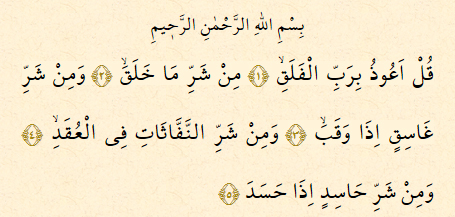 بِسْمِ اللّٰهِ الرَّحْمٰنِ الرَّح۪يمِ
قُلْ اَعُوذُ بِرَبِّ الْفَلَقِۙ ﴿١﴾ مِنْ شَرِّ مَا خَلَقَۙ ﴿٢﴾ وَمِنْ شَرِّ
غَاسِقٍ اِذَا وَقَبَۙ ﴿٣﴾ وَمِنْ شَرِّ النَّفَّاثَاتِ فِي الْعُقَدِۙ ﴿٤﴾
وَمِنْ شَرِّ حَاسِدٍ اِذَا حَسَدَ ﴿٥﴾